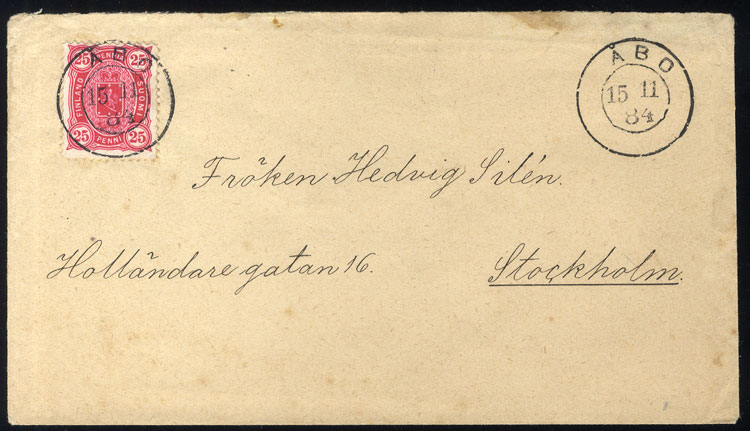 25 PENNI 25
FINLAND SUOMI
25 PENNI 25
ÅBO
15 11
84
ÅBO
15 11
84
Fröken Hedvig Silén.
Holländare gatan 16.
Stockholm.